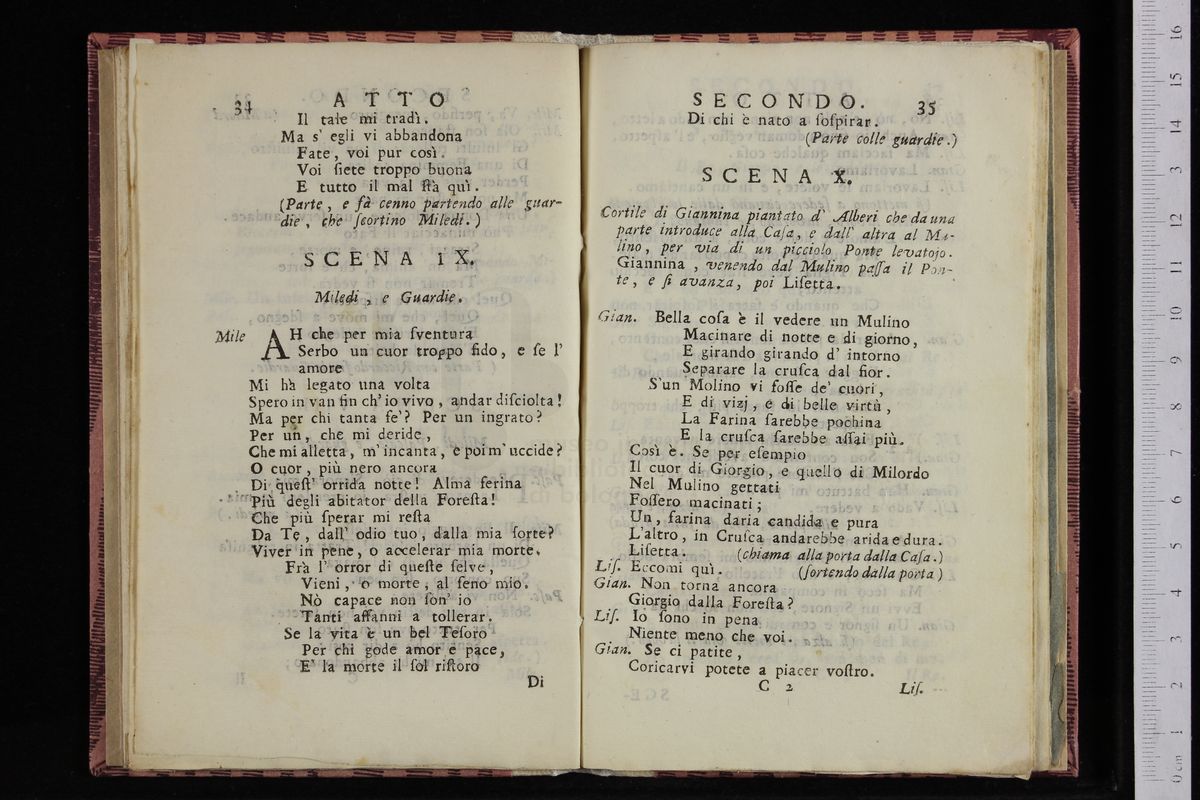 34 ATTO
Il tale mi tradì.
Ma s' egli vi abbandona
Fate, voi pur così.
Voi ſiete troppo buona
E tutto il mal ſtà quì.
(Parte, e fà cenno partendo alle guar-
die, che ſcortino Miledi.)
SCENA IX.
Miledi, e Guardie.
Mile AH che per mia ſventura
Serbo un cuor troppo fido, e ſe l'
amore
Mi hà legato una volta
Spero in van fin ch' io vivo, andar diſciolta!
Ma per chi tanta fe'? Per un ingrato?
Per un, che mi deride,
Che mi alletta, m' incanta, e poi m' uccide?
O cuor, più nero ancora
Di queſt' orrida notte! Alma ferina
Più degli abitator della Foreſta!
Che più ſperar mi reſta
Da Te, dall' odio tuo, dalla mia ſorte?
Viver in pene, o accelerar mia morte.
Frà l' orror di queſte ſelve,
Vieni, o morte, al ſeno mio.
Nò capace non ſon' io
Tanti affanni a tollerar.
Se la vita è un bel Teſoro
Per chi gode amor e pace,
E' la morte il ſol riſtoro
Di
SECONDO. 35
Di chi è nato a ſoſpirar.
(Parte colle guardie.)
SCENA X.
Cortile di Giannina piantato d' Alberi che da una
parte introduce alla Caſa, e dall' altra al Mu-
lino, per via di un picciolo Ponte levatojo.
Giannina, venendo dal Mulino paſſa il Pon-
te, e ſi avanza, poi Liſetta.
Gian. Bella coſa è il vedere un Mulino
Macinare di notte e di giorno,
E girando girando d' intorno
Separare la cruſca dal fior.
S'un Molino vi foſſe de' cuori,
E di vizj, e di belle virtù,
La Farina ſarebbe pochina
E la cruſca ſarebbe aſſai più.
Così è. Se per eſempio
Il cuor di Giorgio, e quello di Milordo
Nel Mulino gettati
Foſſero macinati;
Un, farina daria candida e pura
L'altro, in Cruſca andarebbe arida e dura.
Liſetta. (chiama alla porta dalla Caſa.)
Liſ. Eccomi quì. (ſortendo dalla porta)
Gian. Non torna ancora
Giorgio dalla Foreſta?
Liſ. Io ſono in pena
Niente meno che voi.
Gian. Se ci patite,
Coricarvi potete a piacer voſtro.
C 2 Liſ.